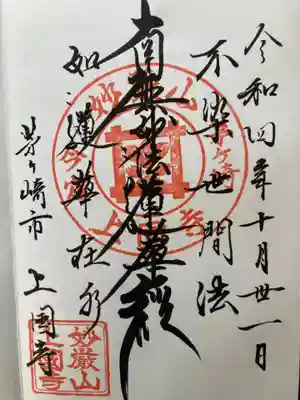 令和四年十月卅一日
不染世間法
南無妙法蓮華経
如蓮華在水
茅ヶ崎市 上国寺
妙厳山
上國寺